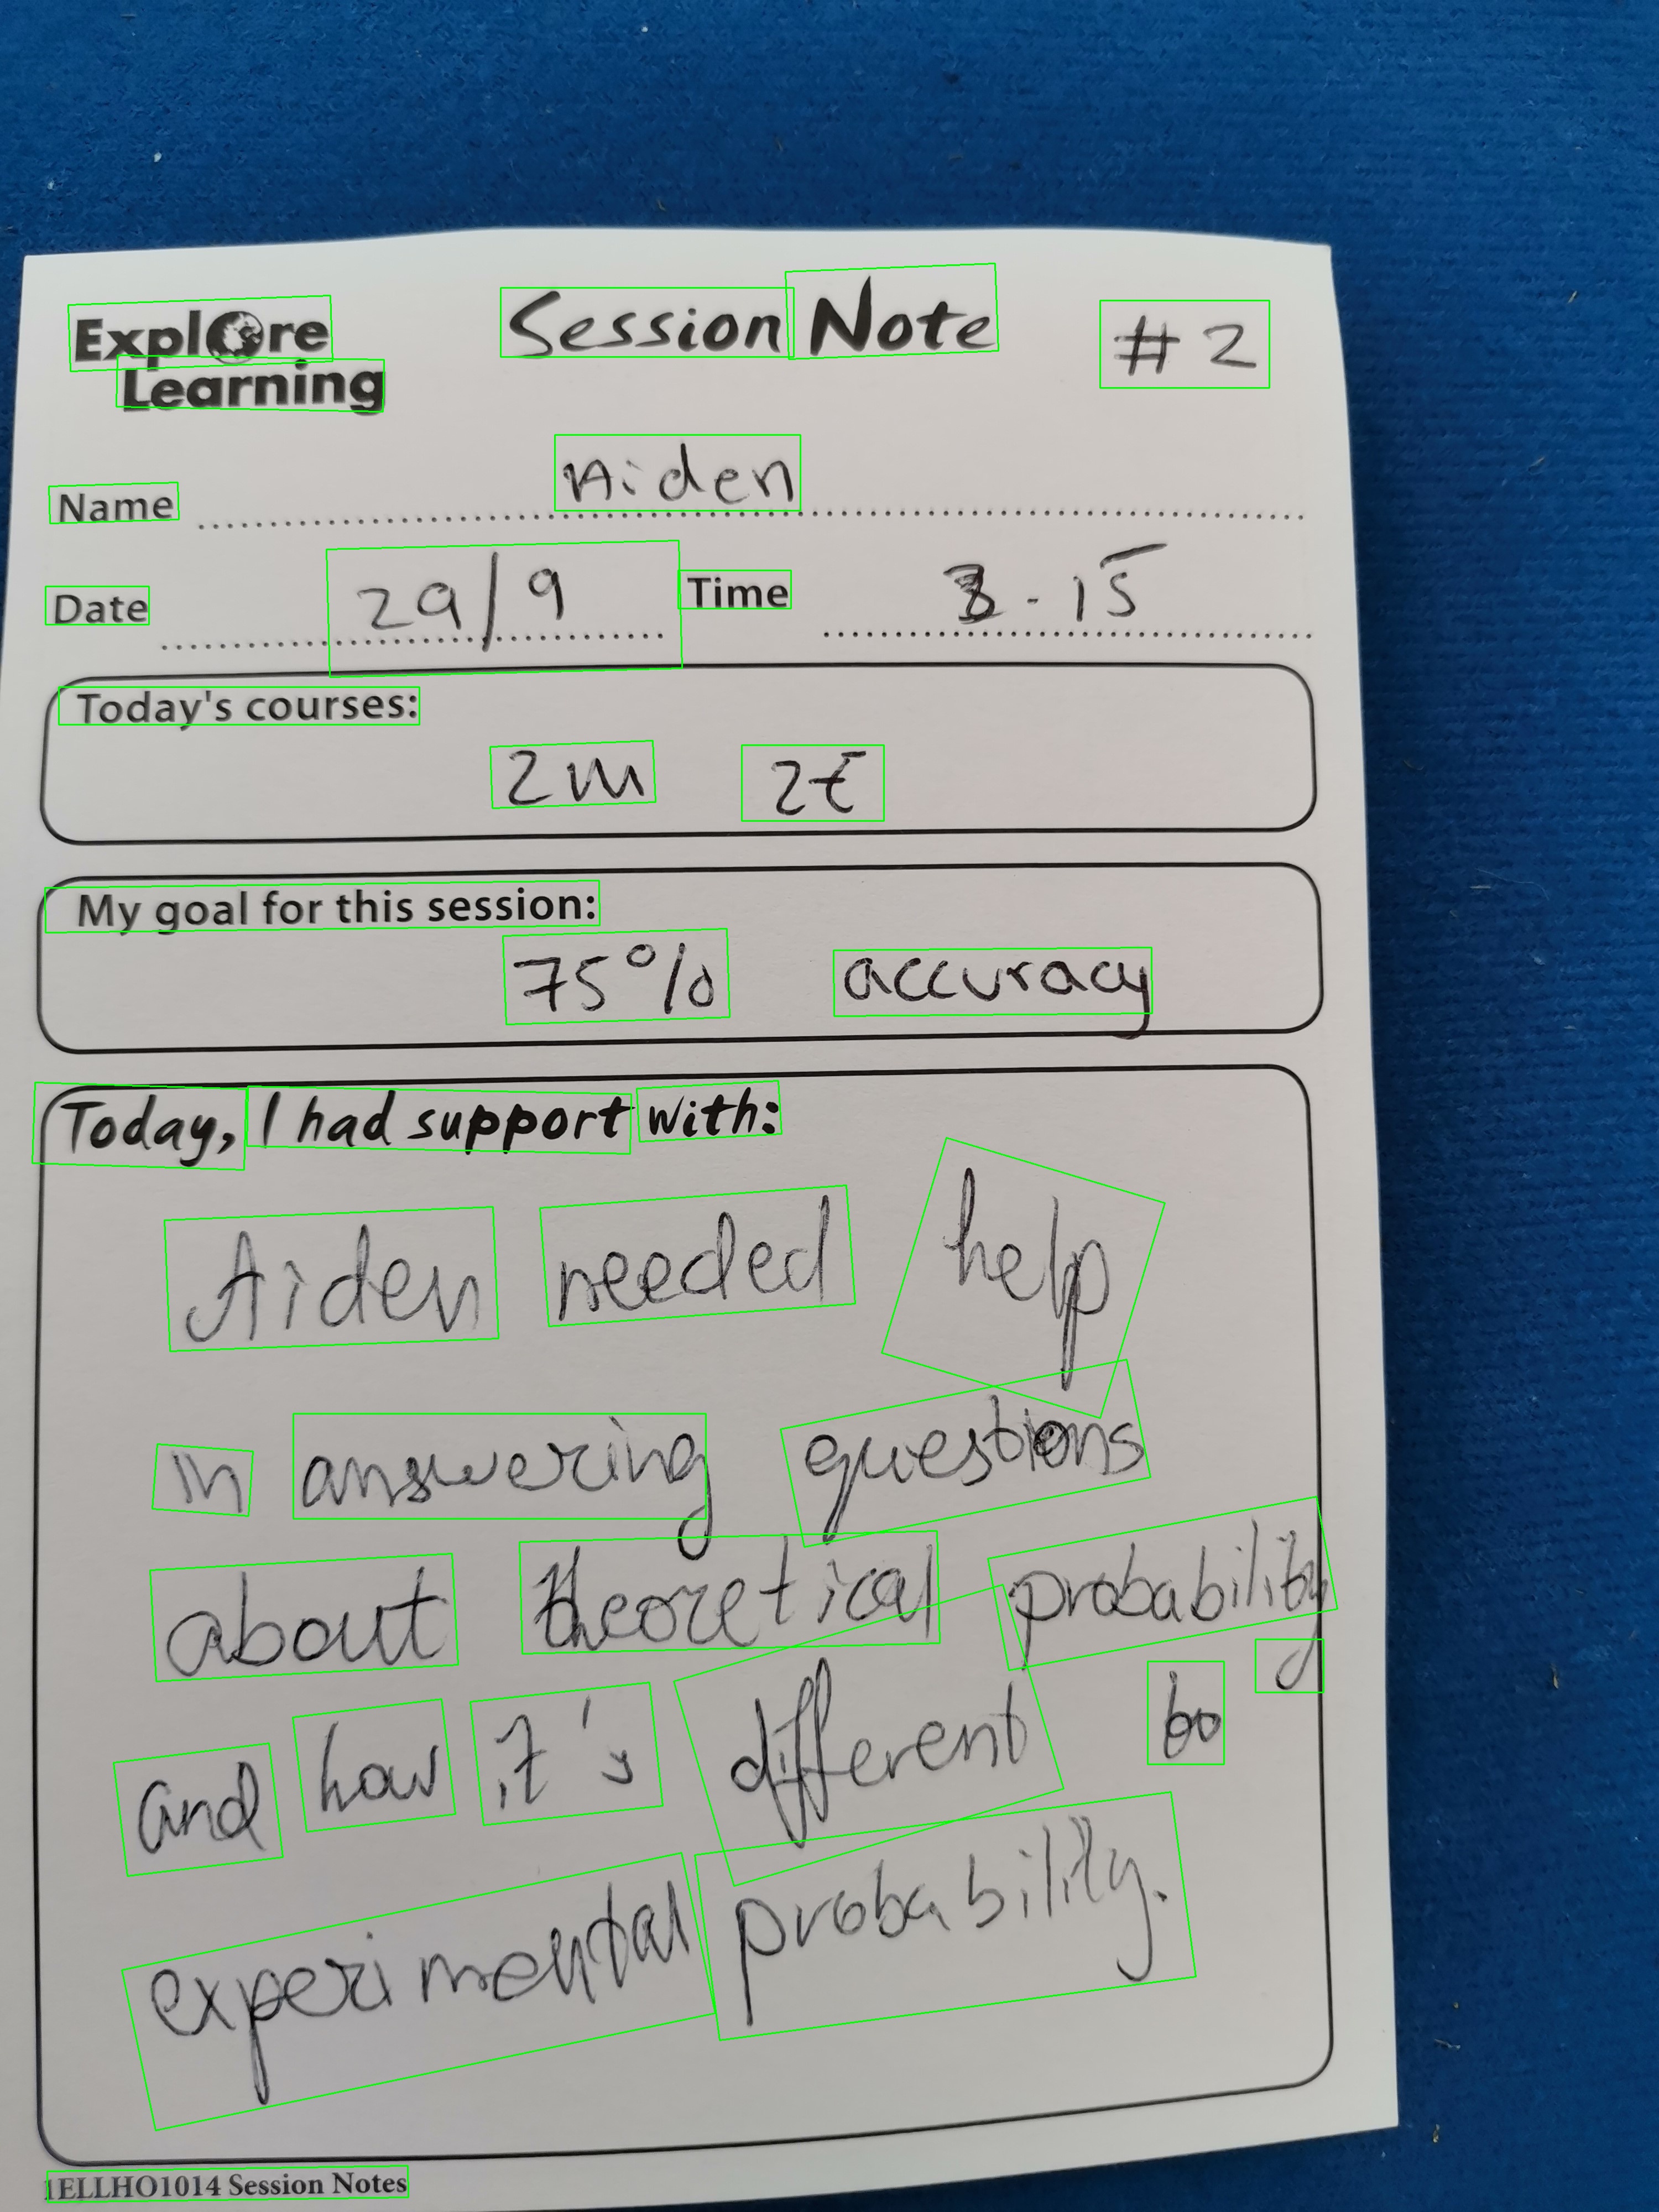 Explore
Learning
Session Note
#2
Name Aiden
Date 29/9 Time 3.15
Today's courses:
2m 2E
My goal for this session:
75% accuracy
Today, I had support with:
Aiden needed help
in answering questions
about theoretical probability
and how it's different to
experimental probability.
1ELLHO1014 Session Notes